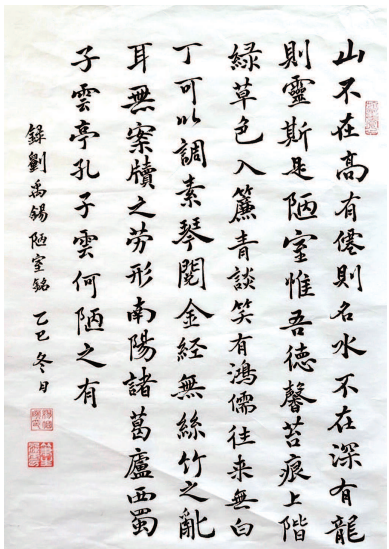 山不在高有僊則名水不在深有龍
則靈斯是陋室惟吾德馨苔痕上階
緑草色入簾青談笑有鴻儒往来無白
丁可以調素琴閱金経無絲竹之亂
耳無案牘之勞形南陽諸葛廬西蜀
子雲亭孔子雲何陋之有
錄劉禹錫陋室銘 乙巳冬日